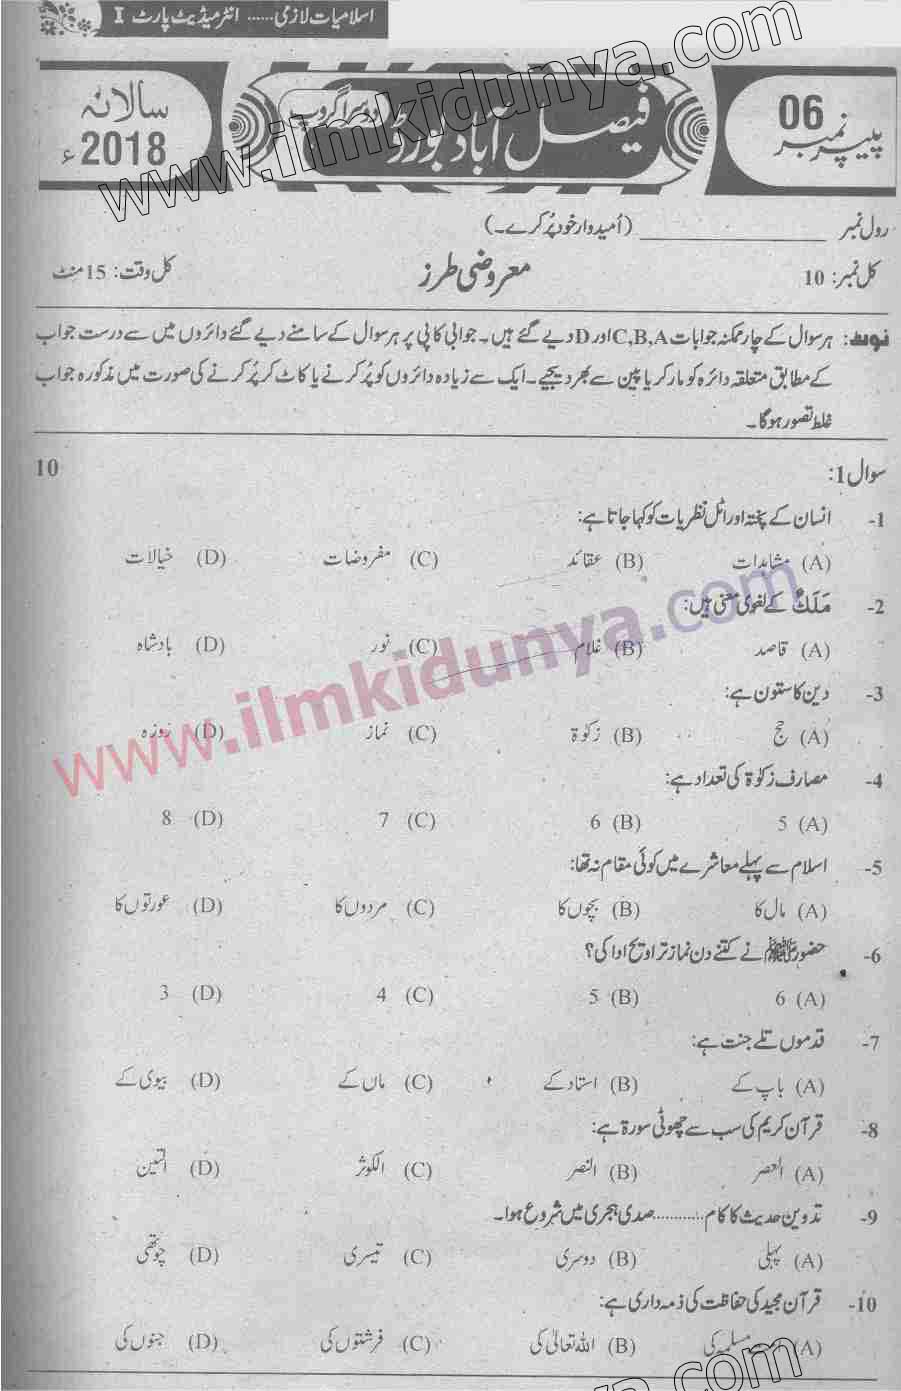 اسلامیات لازمی...... انٹرمیڈیٹ پارٹ I
www.ilmkidunya.com
پیپر نمبر 06
فیصل آباد بورڈ (دوسرا گروپ)
سالانہ 2018ء
رول نمبر ____________ (امیدوار خود پُر کرے۔)
کل نمبر: 10 معروضی طرز کل وقت: 15 منٹ
نوٹ: ہر سوال کے چار ممکنہ جوابات C,B,A اور D دیے گئے ہیں۔ جوابی کاپی پر ہر سوال کے سامنے دیے گئے دائروں میں سے درست جواب
کے مطابق متعلقہ دائرہ کو مارکر یا پین سے بھر دیجیے۔ ایک سے زیادہ دائروں کو پُر کرنے یا کاٹ کر پُر کرنے کی صورت میں مذکورہ جواب
غلط تصور ہوگا۔
سوال 1: 10
1- انسان کے پختہ اور اٹل نظریات کو کہا جاتا ہے:
(A) مشاہدات (B) عقائد (C) مفروضات (D) خیالات
2- مَلَکٌ کے لغوی معنی ہیں:
(A) قاصد (B) غلام (C) نور (D) بادشاہ
www.ilmkidunya.com
3- دین کا ستون ہے:
(A) حج (B) زکوٰۃ (C) نماز (D) روزہ
4- مصارف زکوٰۃ کی تعداد ہے:
(A) 5 (B) 6 (C) 7 (D) 8
5- اسلام سے پہلے معاشرے میں کوئی مقام نہ تھا:
(A) مال کا (B) بچوں کا (C) مردوں کا (D) عورتوں کا
6- حضور ﷺ نے کتنے دن نماز تراویح ادا کی؟
(A) 6 (B) 5 (C) 4 (D) 3
7- قدموں تلے جنت ہے:
(A) باپ کے (B) استاد کے (C) ماں کے (D) بیوی کے
8- قرآن کریم کی سب سے چھوٹی سورۃ ہے:
(A) العصر (B) النصر (C) الکوثر (D) التین
9- تدوین حدیث کا کام...........صدی ہجری میں شروع ہوا۔
(A) پہلی (B) دوسری (C) تیسری (D) چوتھی
10- قرآن مجید کی حفاظت کی ذمہ داری ہے:
(A) مسلمہ کی (B) اللہ تعالیٰ کی (C) فرشتوں کی (D) جنوں کی